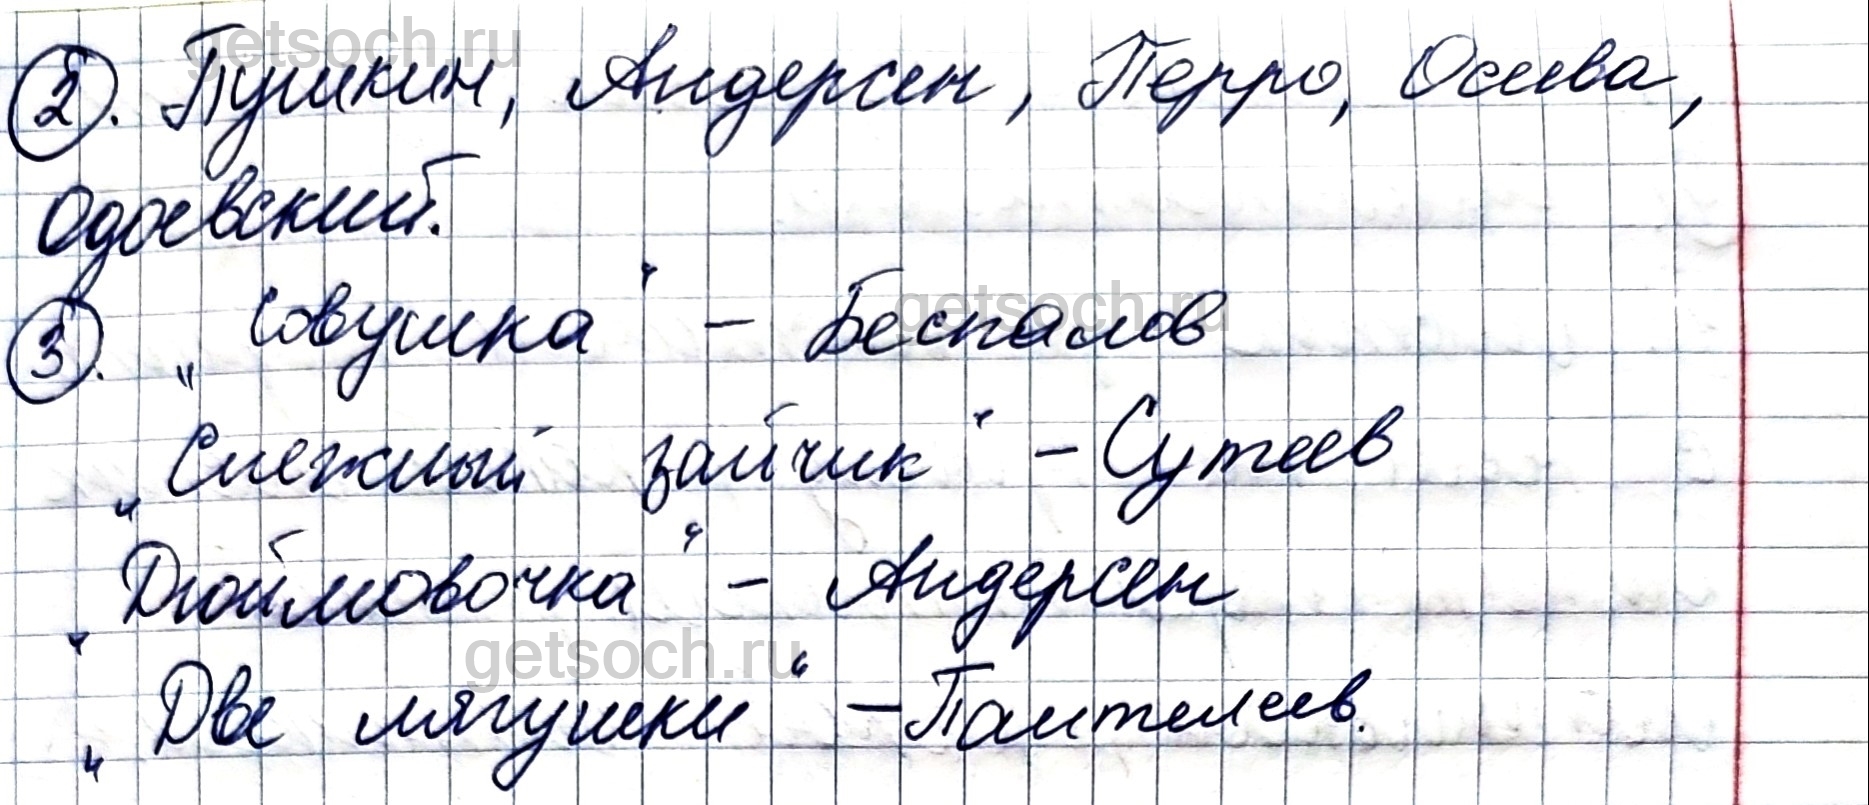 getsoch.ru
2. Пушкин, Андерсен, Перро, Осеева,
Одоевский.
3. „Совушка“ – Беспалов
getsoch.ru
„Снежный зайчик“ – Сутеев
„Дюймовочка“ – Андерсен
getsoch.ru
„Две лягушки“ – Пантелеев.